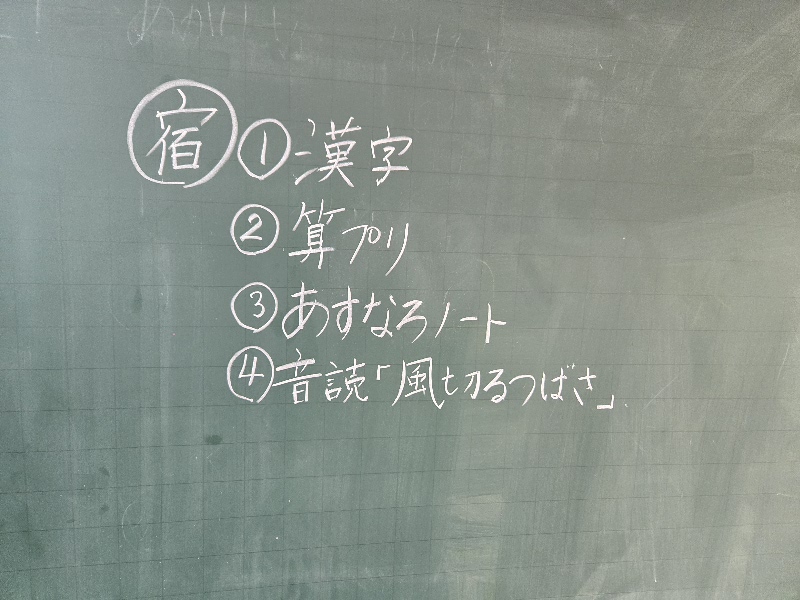 宿 ①漢字
②算プリ
③あすなろノート
④音読「風切るつばさ」